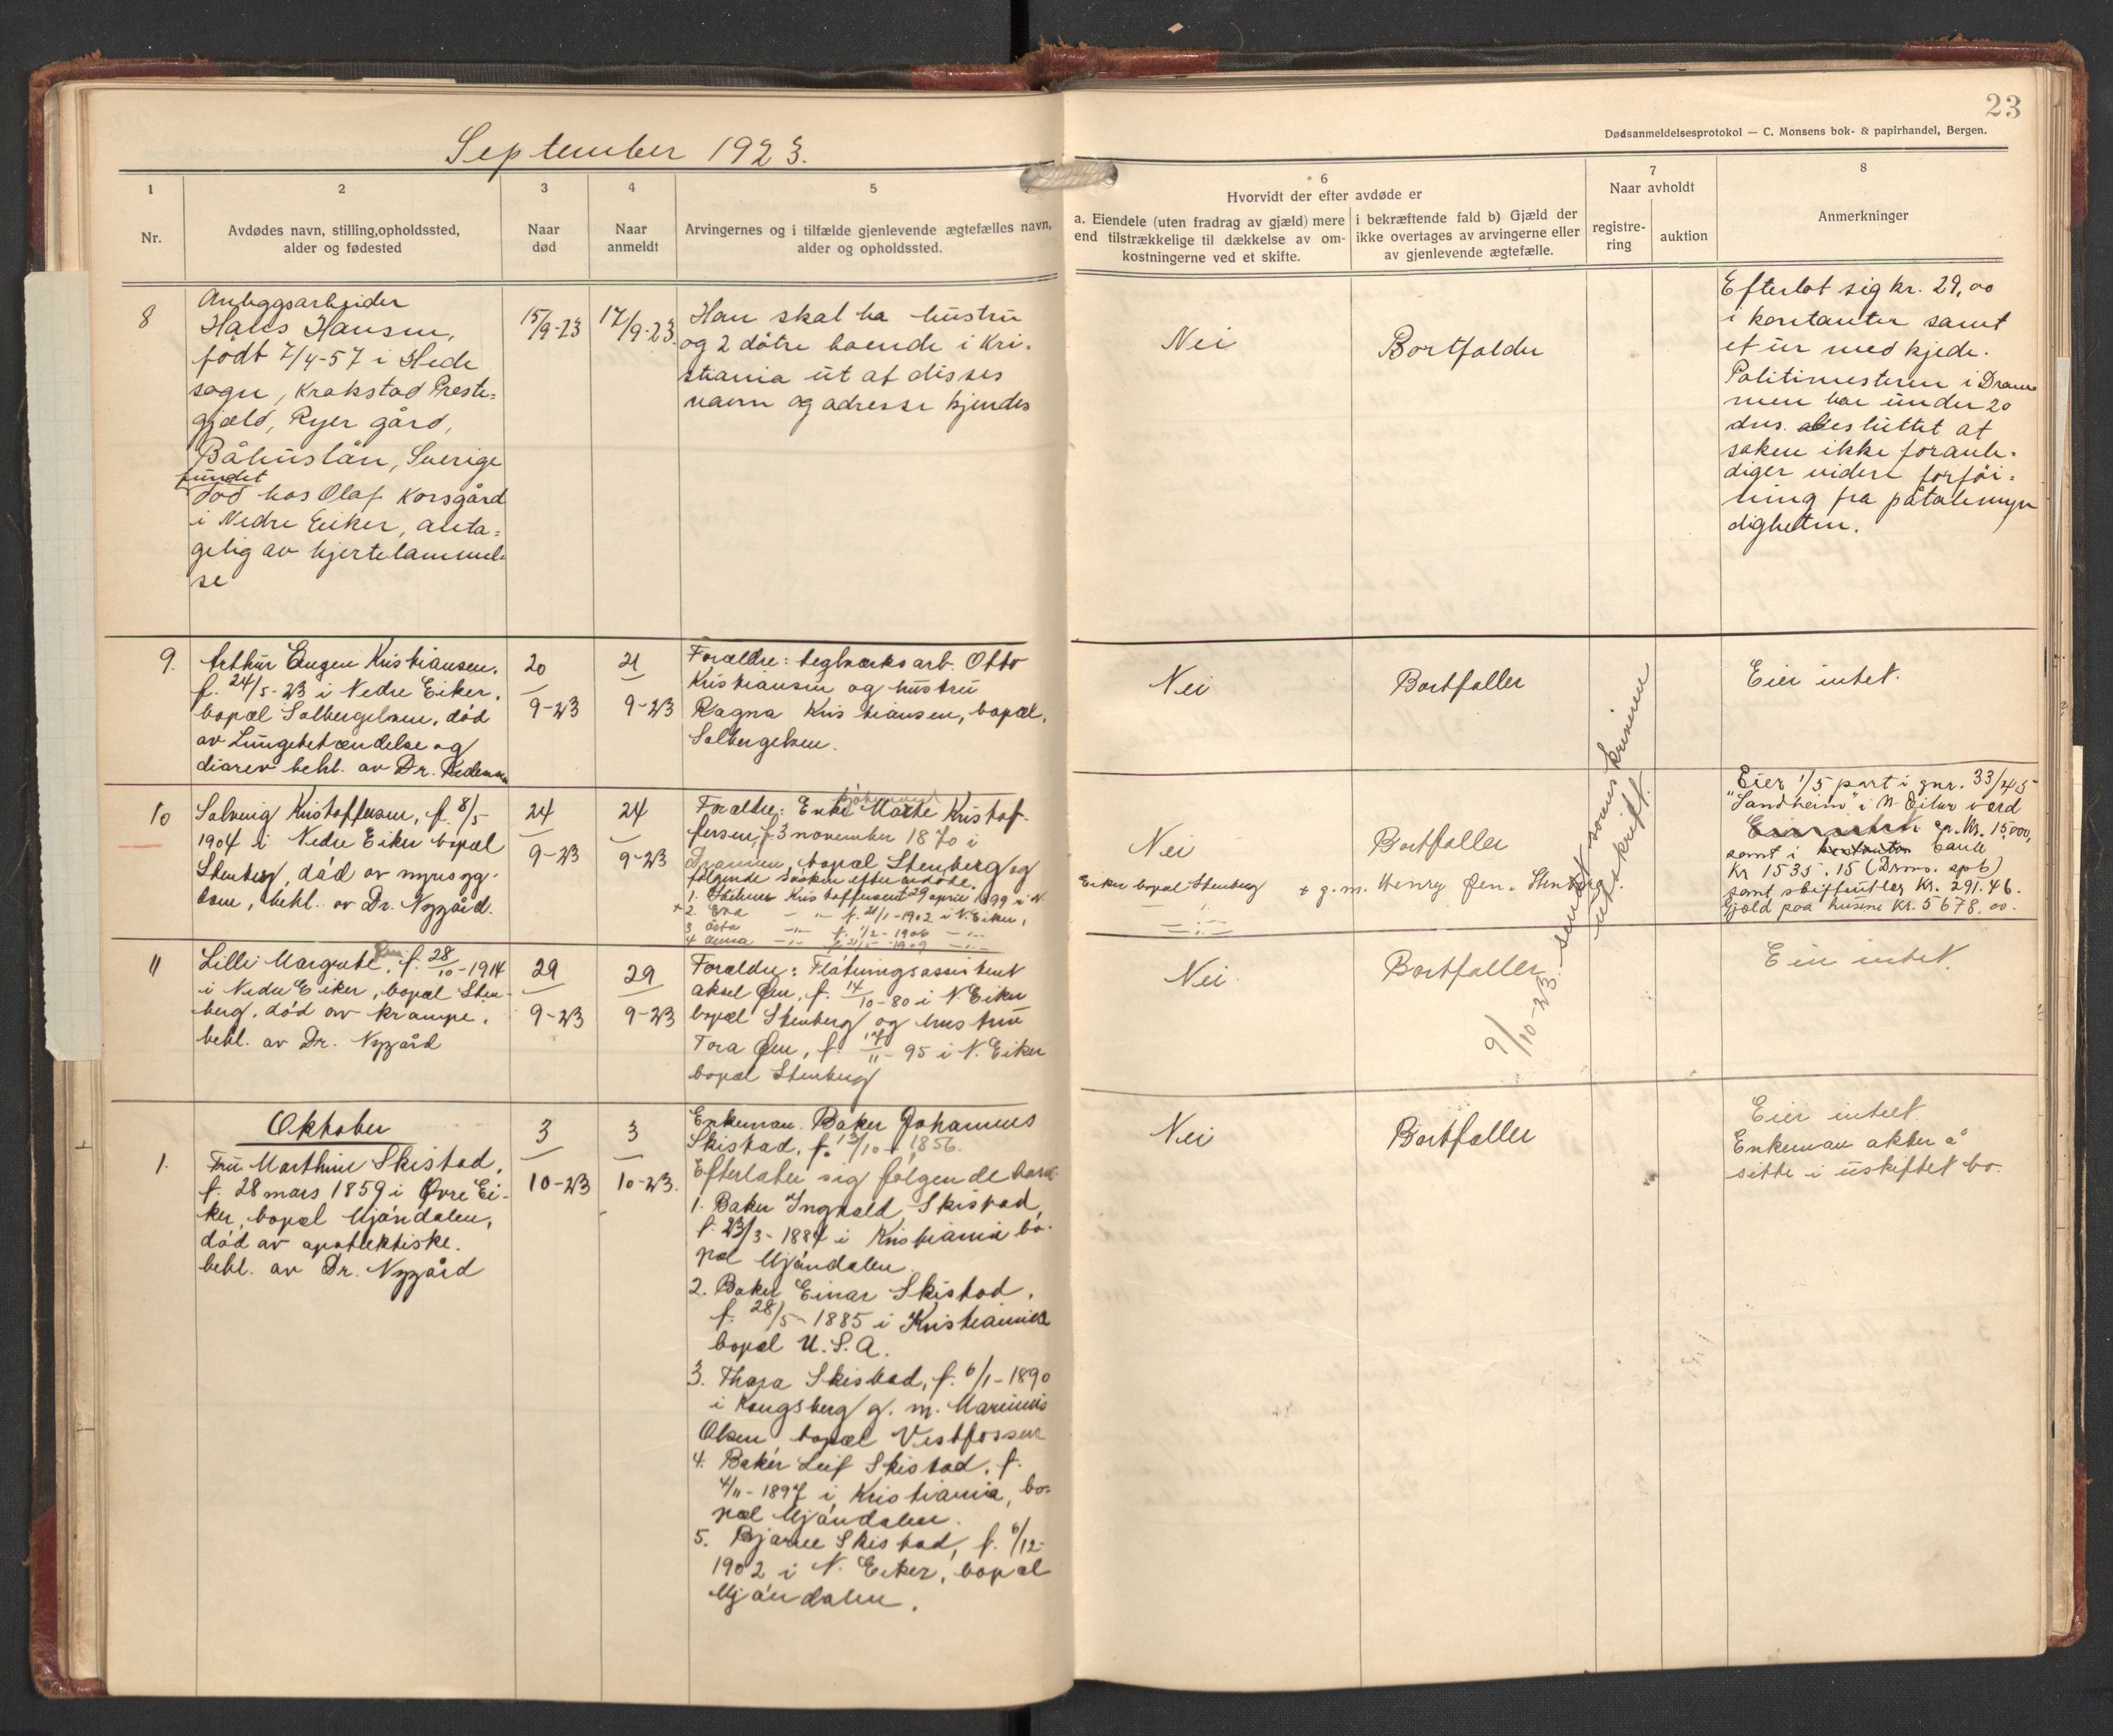 23
Dødsanmeldelsesprotokol — C. Monsens bok- & papirhandel, Bergen.
September 1923.
1
Nr.
2
Avdødes navn, stilling, opholdssted,
alder og fødested
3
Naar
død
4
Naar
anmeldt
5
Arvingernes og i tilfælde gjenlevende ægtefælles navn,
alder og opholdssted.
6
Hvorvidt der efter avdøde er
a. Eiendele (uten fradrag av gjæld) mere
end tilstrækkelige til dækkelse av om-
kostningerne ved et skifte.
i bekræftende fald b) Gjæld der
ikke overtages av arvingerne eller
av gjenlevende ægtefælle.
7
Naar avholdt
registre-
ring
auktion
8
Anmerkninger
8
Anleggsarbeider
Hans Hansen,
født 7/4-57 i Hede
sogn, Krokstad Preste-
gjæld, Ryer gård,
Båhuslän, Sverige
fundet
död hos Olaf Korsgård
i Nedre Eiker, anta-
gelig av hjertelammel-
se
15/9-23
17/9-23.
Han skal ha hustru
og 2 døtre boende i Kri-
stiania ut at disses
navn og adresse kjendes
Nei
Bortfalder
Efterlot sig kr. 29,00
i kontanter samt
et ur med kjede.
Politimesteren i Dram
men har under 20
dns. besluttet at
saken ikke foranle-
diger videre forföi-
ning fra påtalemyn
digheten.
9.
Arthur Eugen Kristiansen.
f. 24/5-23 i Nedre Eiker.
bopæl Solbergelven, död
av Lungebetændelse og
diarev behl. av Dr.
20
9-23
21
9-23
Forældre: teglverksarb. Otto
Kristiansen og hustru
Ragna Kristiansen, bopæl.
Solbergelven.
Nei
Bortfaller
Eier intet.
10
Solveig Kristoffersen, f. 8/5
1904 i Nedre Eiker bopæl
Stenberg, död av
behl. av Dr. Nygård.
24
9-23
24
9-23
Forældre: Enke Marte Kristof-
fersen, f. 3 november 1870 i
Drammen, bopæl Stenberg og
følgende søsken efter avdøde.
1. Kristoffersen f 29 april 1899 i N.
+ 2. Eva -"- f. 21/1-1902 i N. Eiker,
3 Asta -"- f. 1/2-1906 -"-
4 Anna -"- 1909 -"-
Nei
Eiker bopæl Stenberg
Bortfaller
+ g. m. Henry Jen. Stenberg
Eier 1/5 part i gnr. 33/245
"Sandheim" i N. Eiker verd
kr. 15,000,
samt i bank
Kr 1535.15 (Drms. spb)
samt skiffeutlæg Kr. 291.46.
Gjæld paa husene Kr. 5678,00.
9/10-23. sendt sorenskriveren
utskrift.
11
Lilli Margrete, f. 28/10-1914
i Nedre Eiker, bopæl Sten-
berg. död av krampe.
behl. av Dr. Nygård
29
9-23
29
9-23
Forældre: Fløtningsassistent
Aksel Øen, f. 14/10-80 i N. Eiker
bopæl Stenberg og hustru
Tora Øen, f. 17/11-95 i N. Eiker
bopæl Stenberg
Nei
Bortfaller
Eier intet.
Oktober
1.
Fru Marthine Skistad,
f. 28 mars 1859 i Øvre Ei-
ker, bopæl Mjöndalen,
död av apoplektiske.
behl. av Dr. Nygård
3
10-23
3
10-23.
Enkeman. Baker Johannes
Skistad, f. 13/10-1856.
Efterlater sig følgende barn
1. Baker Ingvald Skistad,
f. 23/3-1884 i Kristiania bo-
pæl Mjöndalen.
2. Baker Einar Skistad.
f. 28/5-1885 i Kristiania
bopæl U.S.A.
3. Thora Skistad, f. 6/1-1890
i Kongsberg g. m. Marinius
Olsen bopæl Vestfossen
4. Baker Leif Skistad. f.
4/11-1897 i Kristiania, bo-
pæl Mjöndalen.
5. Bjarne Skistad, f. 6/12-
1902 i N. Eiker, bopæl
Mjöndalen.
Nei
Bortfaller
Eier intet
Enkeman akter å
sitte i uskiftet bo.